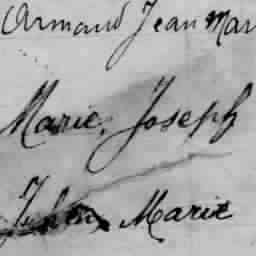 Armand Jean Mar
Marie, Joseph
Julien Marie